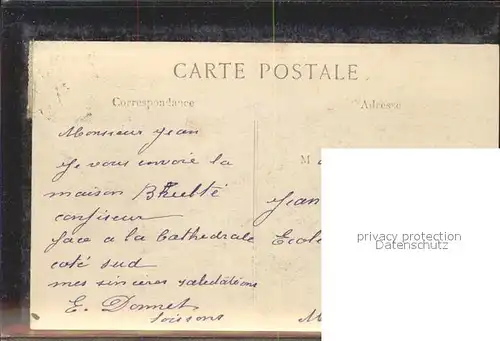 CARTE POSTALE
Correspondance
Adresse
Monsieur Jean
Je vous envoie la
M
maison
Jean
confiseur
face a la Cathédrale
Ecole
privacy protection
Datenschutz
coté sud
mes sincères salutations
E. Donnet
Soissons
M